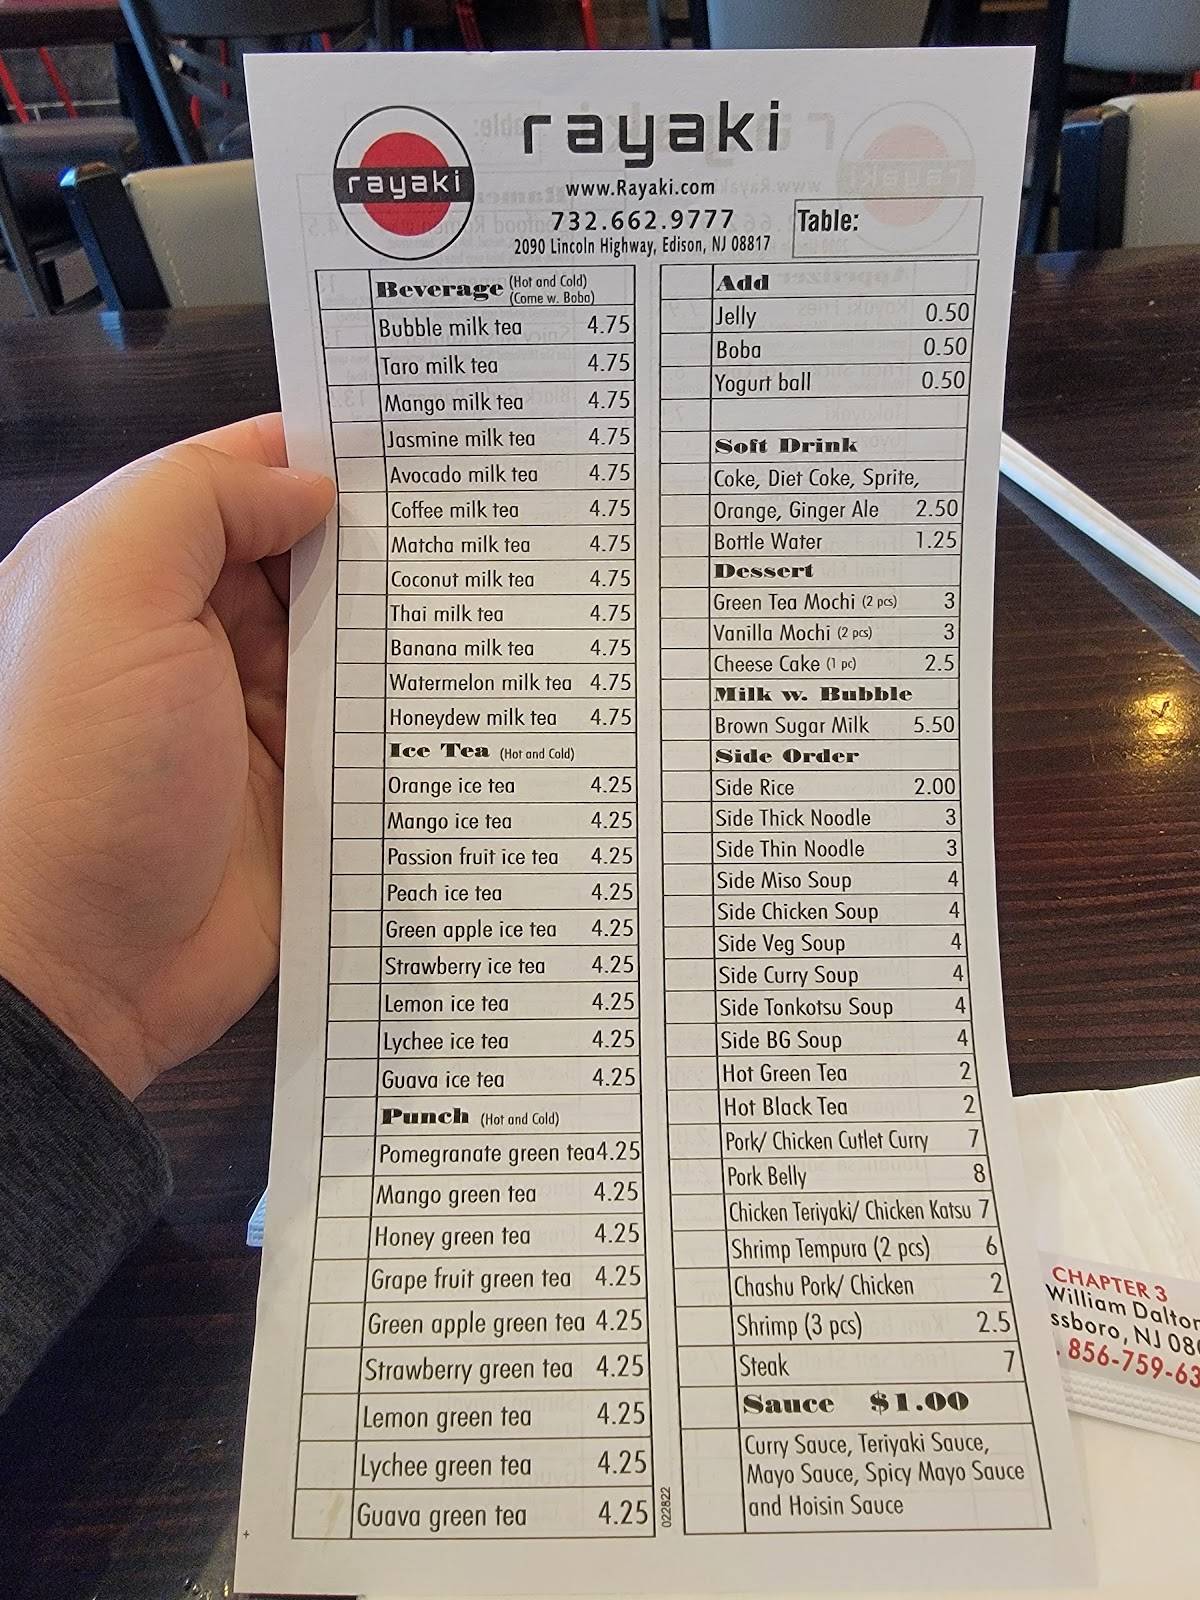 rayaki
rayaki
www.Rayaki.com
732.662.9777
2090 Lincoln Highway, Edison, NJ 08817
Table:
Beverage (Hot and Cold)
(Come w. Boba)
Bubble milk tea 4.75
Taro milk tea 4.75
Mango milk tea 4.75
Jasmine milk tea 4.75
Avocado milk tea 4.75
Coffee milk tea 4.75
Matcha milk tea 4.75
Coconut milk tea 4.75
Thai milk tea 4.75
Banana milk tea 4.75
Watermelon milk tea 4.75
Honeydew milk tea 4.75
Ice Tea (Hot and Cold)
Orange ice tea 4.25
Mango ice tea 4.25
Passion fruit ice tea 4.25
Peach ice tea 4.25
Green apple ice tea 4.25
Strawberry ice tea 4.25
Lemon ice tea 4.25
Lychee ice tea 4.25
Guava ice tea 4.25
Punch (Hot and Cold)
Pomegranate green tea 4.25
Mango green tea 4.25
Honey green tea 4.25
Grape fruit green tea 4.25
Green apple green tea 4.25
Strawberry green tea 4.25
Lemon green tea 4.25
Lychee green tea 4.25
Guava green tea 4.25
022822
Add
Jelly 0.50
Boba 0.50
Yogurt ball 0.50
Soft Drink
Coke, Diet Coke, Sprite,
Orange, Ginger Ale 2.50
Bottle Water 1.25
Dessert
Green Tea Mochi (2 pcs) 3
Vanilla Mochi (2 pcs) 3
Cheese Cake (1 pc) 2.5
Milk w. Bubble
Brown Sugar Milk 5.50
Side Order
Side Rice 2.00
Side Thick Noodle 3
Side Thin Noodle 3
Side Miso Soup 4
Side Chicken Soup 4
Side Veg Soup 4
Side Curry Soup 4
Side Tonkotsu Soup 4
Side BG Soup 4
Hot Green Tea 2
Hot Black Tea 2
Pork/ Chicken Cutlet Curry 7
Pork Belly 8
Chicken Teriyaki/ Chicken Katsu 7
Shrimp Tempura (2 pcs) 6
Chashu Pork/ Chicken 2
Shrimp (3 pcs) 2.5
Steak 7
Sauce $1.00
Curry Sauce, Teriyaki Sauce,
Mayo Sauce, Spicy Mayo Sauce
and Hoisin Sauce
CHAPTER 3
William Dalton
ssboro, NJ 08
856-759-63